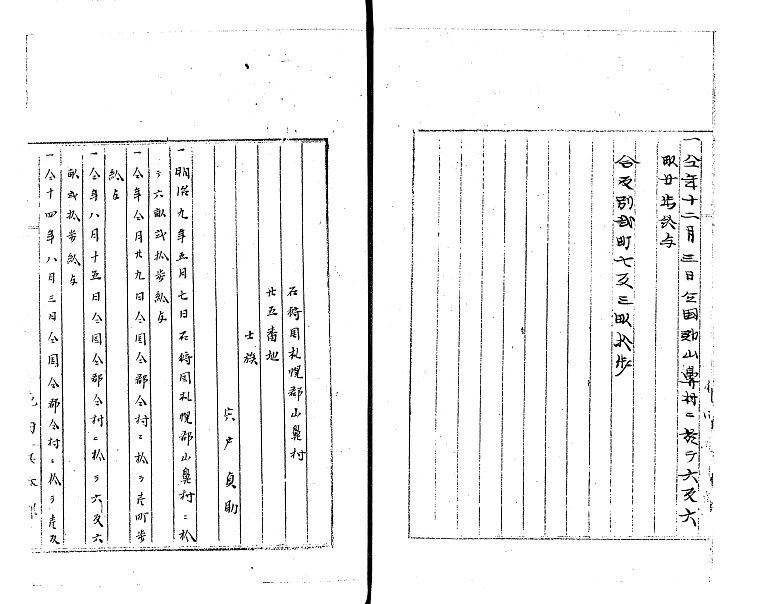 一仝年十二月三日仝国仝郡山鼻村ニ於テ六反六
畝廿歩給与
合反別弐町七反三畝拾歩
石狩国札幌郡山鼻村
廿五番地
士族
宍戸貞助
一明治九年五月七日石狩国札幌郡山鼻村ニ於
テ六畝弐拾歩給与
一仝年仝月廿九日仝国仝郡仝村ニ於テ壱町歩
給与
一仝年八月十五日仝国仝郡仝村ニ於テ六反六
畝弐拾歩給与
一仝十四年八月三日仝国仝郡仝村ニ於テ壱反